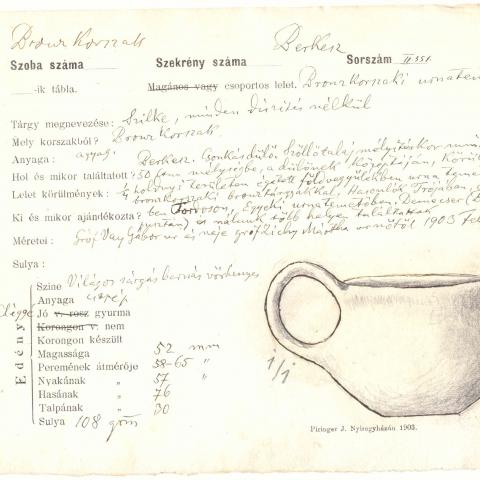 Bronz Korszak
Berkesz
Szoba száma
Szekrény száma
Sorszám II.551.
-ik tábla.
Magános vagy csoportos lelet. Bronzkorszaki urnatem
Tárgy megnevezése: Szilke, minden díszítés nélkül
Mely korszakból? Bronz korszak.
Anyaga: agyag
Berkesz. Csonkásdűlő. Szőllőtalaj mélyítéskor
Hol és mikor találtatott? 50 ctm mélységbe, a dűlőnek közepetáján,
Lelet körülmények: holdnyi területen égetett földvegyülékben urna
bronzkorszaki bronztárgyakkal. Hasonlók Trójában,
Ki és mikor ajándékozta? ben Tordoson, Egyeki urnatemetőben, Demecser
pusztán) és nálunk több helyen találtattak
Méretei: Gróf Vay Gábor úr és neje gróf Zichy Mártha úrnőtől 1903
Sulya:
Edény
Szine Világos sárgás barnás vörhenyes
Anyaga cserép
Jó v. rosz gyurma
Korongon v. nem
Korongon készült
Magassága 52 mm
Peremének átmérője 58-65 "
Nyakának " 57 "
Hasának " 76
Talpának " 30
Sulya 108 gr
1/1
Piringer J. Nyiregyházán 1903.